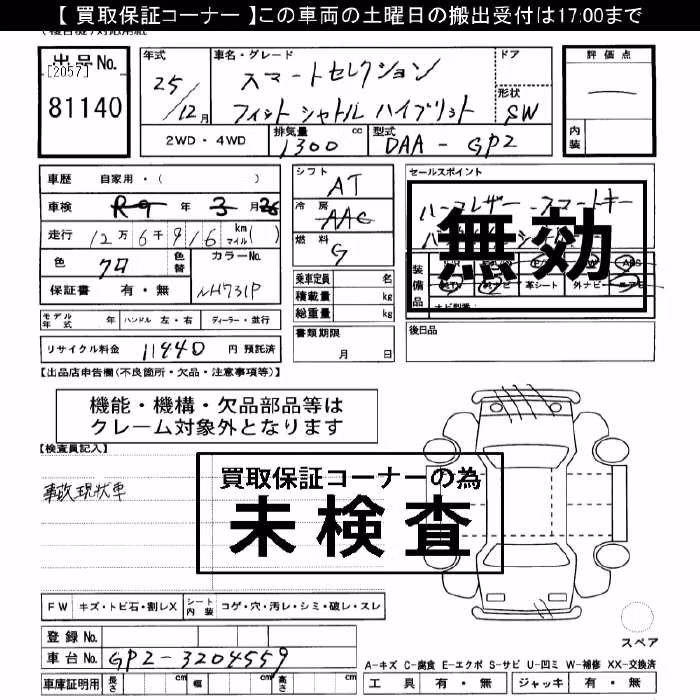 【 買取保証コーナー 】この車両の土曜日の搬出受付は17:00まで
出品No.
[2057]
81140
年式
25/12月
車名・グレード
スマートセレクション
フィットシャトル ハイブリット
ドア
形状
SW
評価点
内装
2WD・4WD
排気量
1300 cc
型式
DAA-GP2
車歴 自家用・( )
車検 R9 年 3 月 26
走行 12万6千916 km マイル( )
色 クロ
色替
カラーNo.
NH731P
保証書 有・無
モデル年式 年
ハンドル 左・右
ディーラー・並行
リサイクル料金 11440 円 預託済
シフト AT
冷房 AAC
燃料 G
乗車定員 名
積載量 kg
総重量 kg
書類期限
月 日
セールスポイント
ハーフレザー スマートキー
無効
装備品
革シート
外ナビ
ナビ型番:
後日品
【出品店申告欄(不良箇所・欠品・注意事項等)】
機能・機構・欠品部品等は
クレーム対象外となります
【検査員記入】
事故現状車
買取保証コーナーの為
未検査
FW キズ・トビ石・割レX
シート内装 コゲ・穴・汚レ・シミ・破レ・スレ
登録No.
車台No. GP2-3204559
車庫証明用 長さ cm 幅 cm 高さ cm
スペア
A-キズ C-腐食 E-エクボ S-サビ U-凹ミ W-補修 XX-交換済
工具 有・無 ジャッキ 有・無